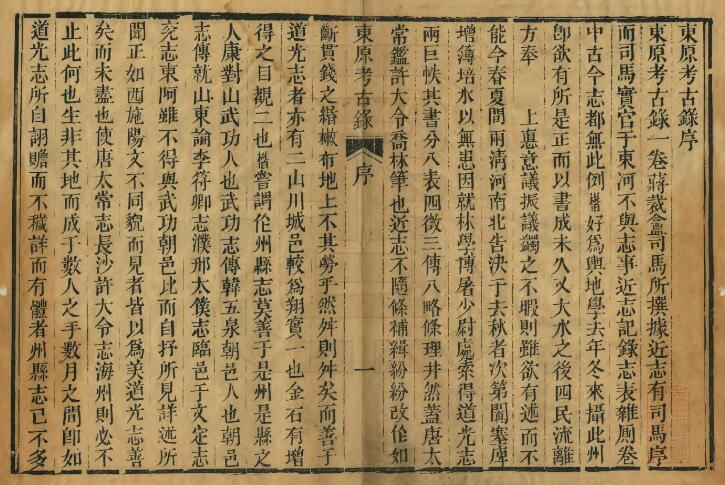 東原考古錄序
東原考古錄一卷蔣裁盦司馬所撰據近志有司馬序
而司馬實官于東河不與志事近志記錄志表雜厠卷
中古今志都無此例楷好為輿地學去年冬來攝此州
卽欲有所是正而以書成未久又大水之後四民流離
方奉 上惠意議振議蠲之不暇則雖欲有述而不
能今春夏間兩淸河南北告決于去秋者次第闔塞庳
增薄培水以無患因就林學博屠少尉處索得道光志
兩巨帙其書分八表四徵三傳八略條理井然蓋唐太
常鑑許大令喬林筆也近志不隨條補緝紛紛改作如
東原考古錄 序 一
斷貫錢之緡散布地上不其勞乎然舛則舛矣而善于
道光志者亦有二山川城邑較為翔實一也金石有增
得之目覩二也楷嘗謂作州縣志莫善于是州是縣之
人康對山武功人也武功志傳韓五泉朝邑人也朝邑
志傳就山東論李符卿志濮邢太僕志臨邑于文定志
兖志東阿雖不得與武功朝邑比而自抒所見詳述所
聞正如西施陽文不同貌而見者皆以為美道光志善
矣而未盡也使唐太常志長沙許大令志海州則必不
止此何也生非其地而成于數人之手數月之間卽如
道光志所自詡贍而不穢詳而有體者州縣志已不多